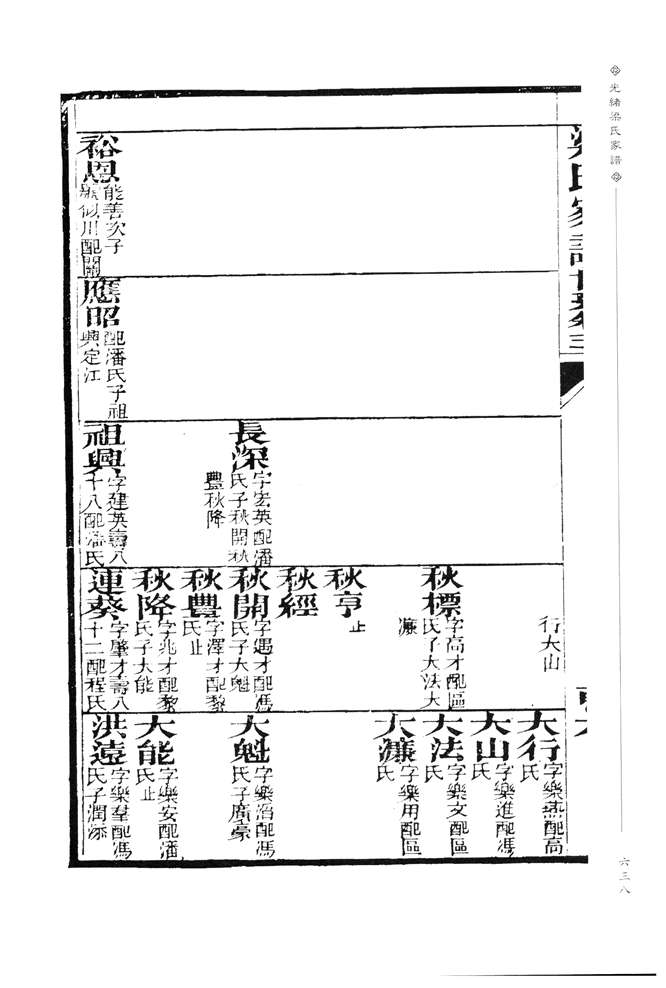 光緒梁氏家譜
梁氏家譜世系卷三
六三八
行大山
秋標
字高才配區
氏子大法大
濂
秋亨
止
秋經
大行
字樂燕配高
氏
大山
字樂進配馮
氏
大法
字樂文配區
氏
大濂
字樂用配區
氏
長深
字宏英配潘
氏子秋開秋
豐秋降
秋開
字遇才配馮
氏子大魁
秋豐
字澤才配黎
氏止
秋降
字兆才配黎
氏子大能
大魁
字樂滔配馮
氏子廣豪
大能
字樂安配潘
氏止
裕恩
能善次子
號似川配關
應昭
配潘氏子祖
興定江
祖興
字建英壽八
十八配潘氏
連葵
字肇才壽八
十二配程氏
洪遠
字樂羣配馮
氏子潤添